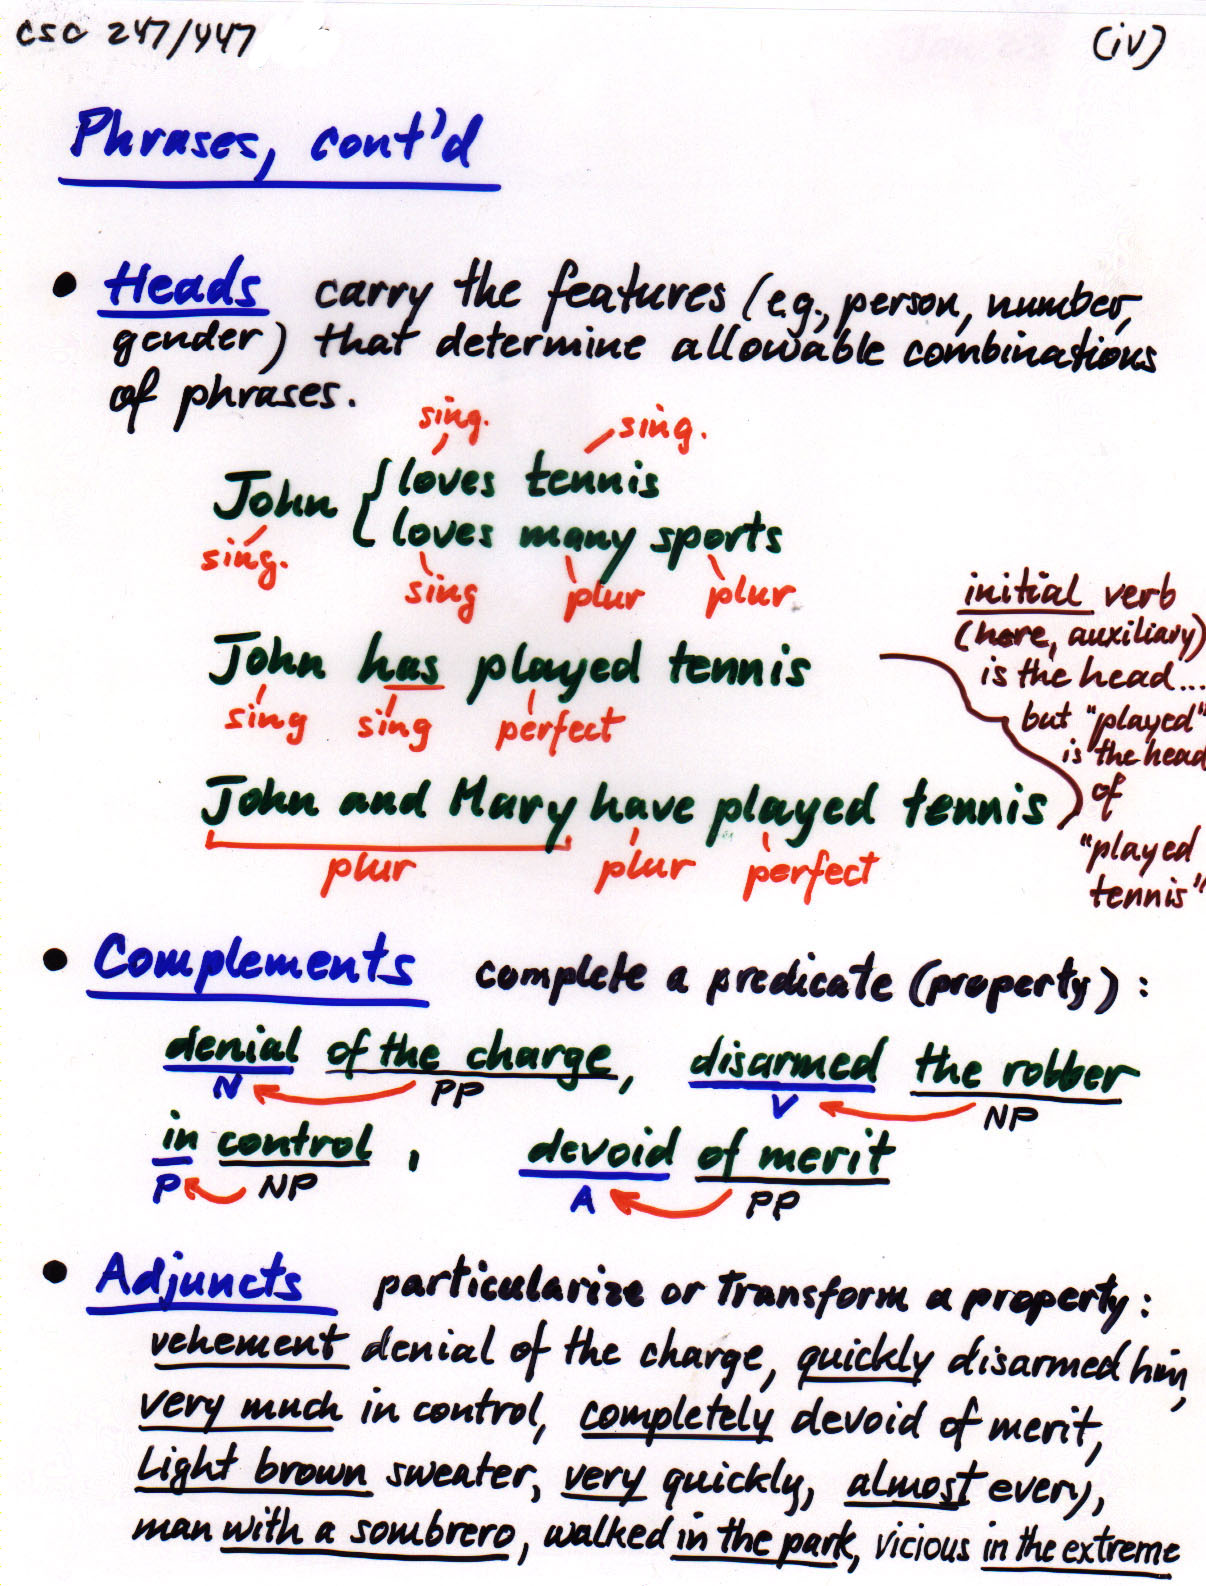 CSC 247/447 (iv)
Phrases, cont'd
• Heads carry the features (e.g., person, number,
gender) that determine allowable combinations
of phrases.
sing. sing.
John { loves tennis
loves many sports
sing. sing plur plur
John has played tennis
sing sing perfect
John and Mary have played tennis
plur plur perfect
initial verb
(here, auxiliary)
is the head...
but "played"
is the head
of
"played
tennis"
• Complements complete a predicate (property):
denial of the charge, disarmed the robber
N PP V NP
in control, devoid of merit
P NP A PP
• Adjuncts particularize or transform a property:
vehement denial of the charge, quickly disarmed him,
very much in control, completely devoid of merit,
light brown sweater, very quickly, almost every,
man with a sombrero, walked in the park, vicious in the extreme